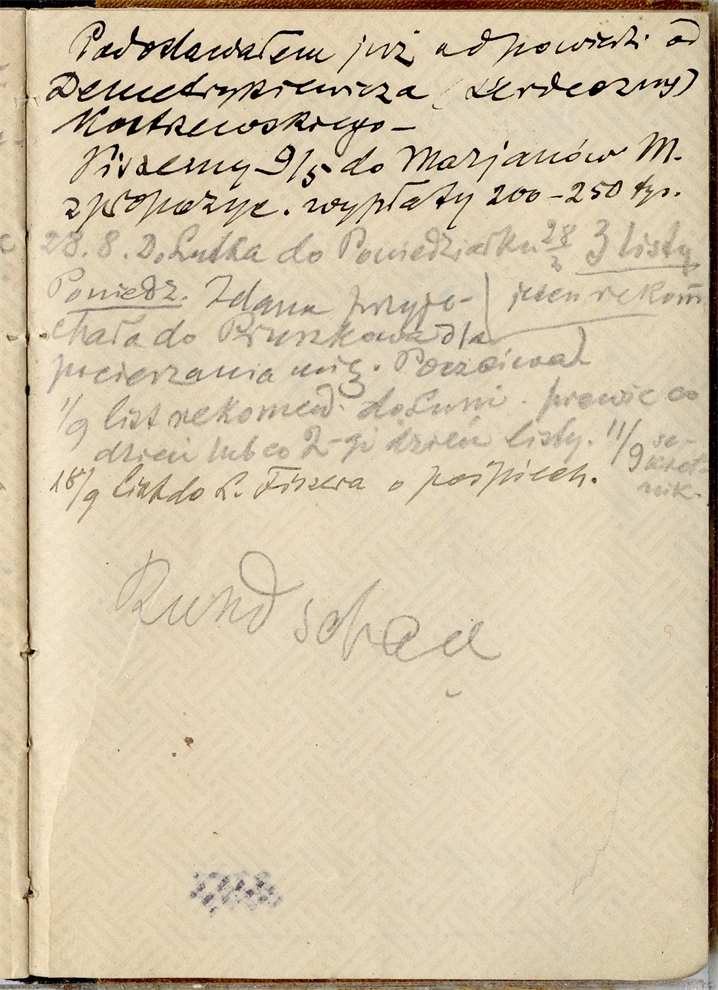 Podostawałem już odpowiedzi od
Demetrykiewicza (serdeczny)
Kostrzewskiego –
Piszemy 9/5 do Marjanów M.
z propozyc. wypłaty 200–250 tys.
28.8. D. Lutka do Poniedziałku 28/8 3 listy
Poniedz. Zdana przyje- jeden rekom
chała do Pruszkowa dla
pocierzania mię. Poczciwa!
1/9 list rekomend. do Luni. prawie co
dzień lub co 2-gi dzień listy. 11/9 se-
kret-
nik.
18/9 list do L. Fiszera o pośpiech.
Rundschau